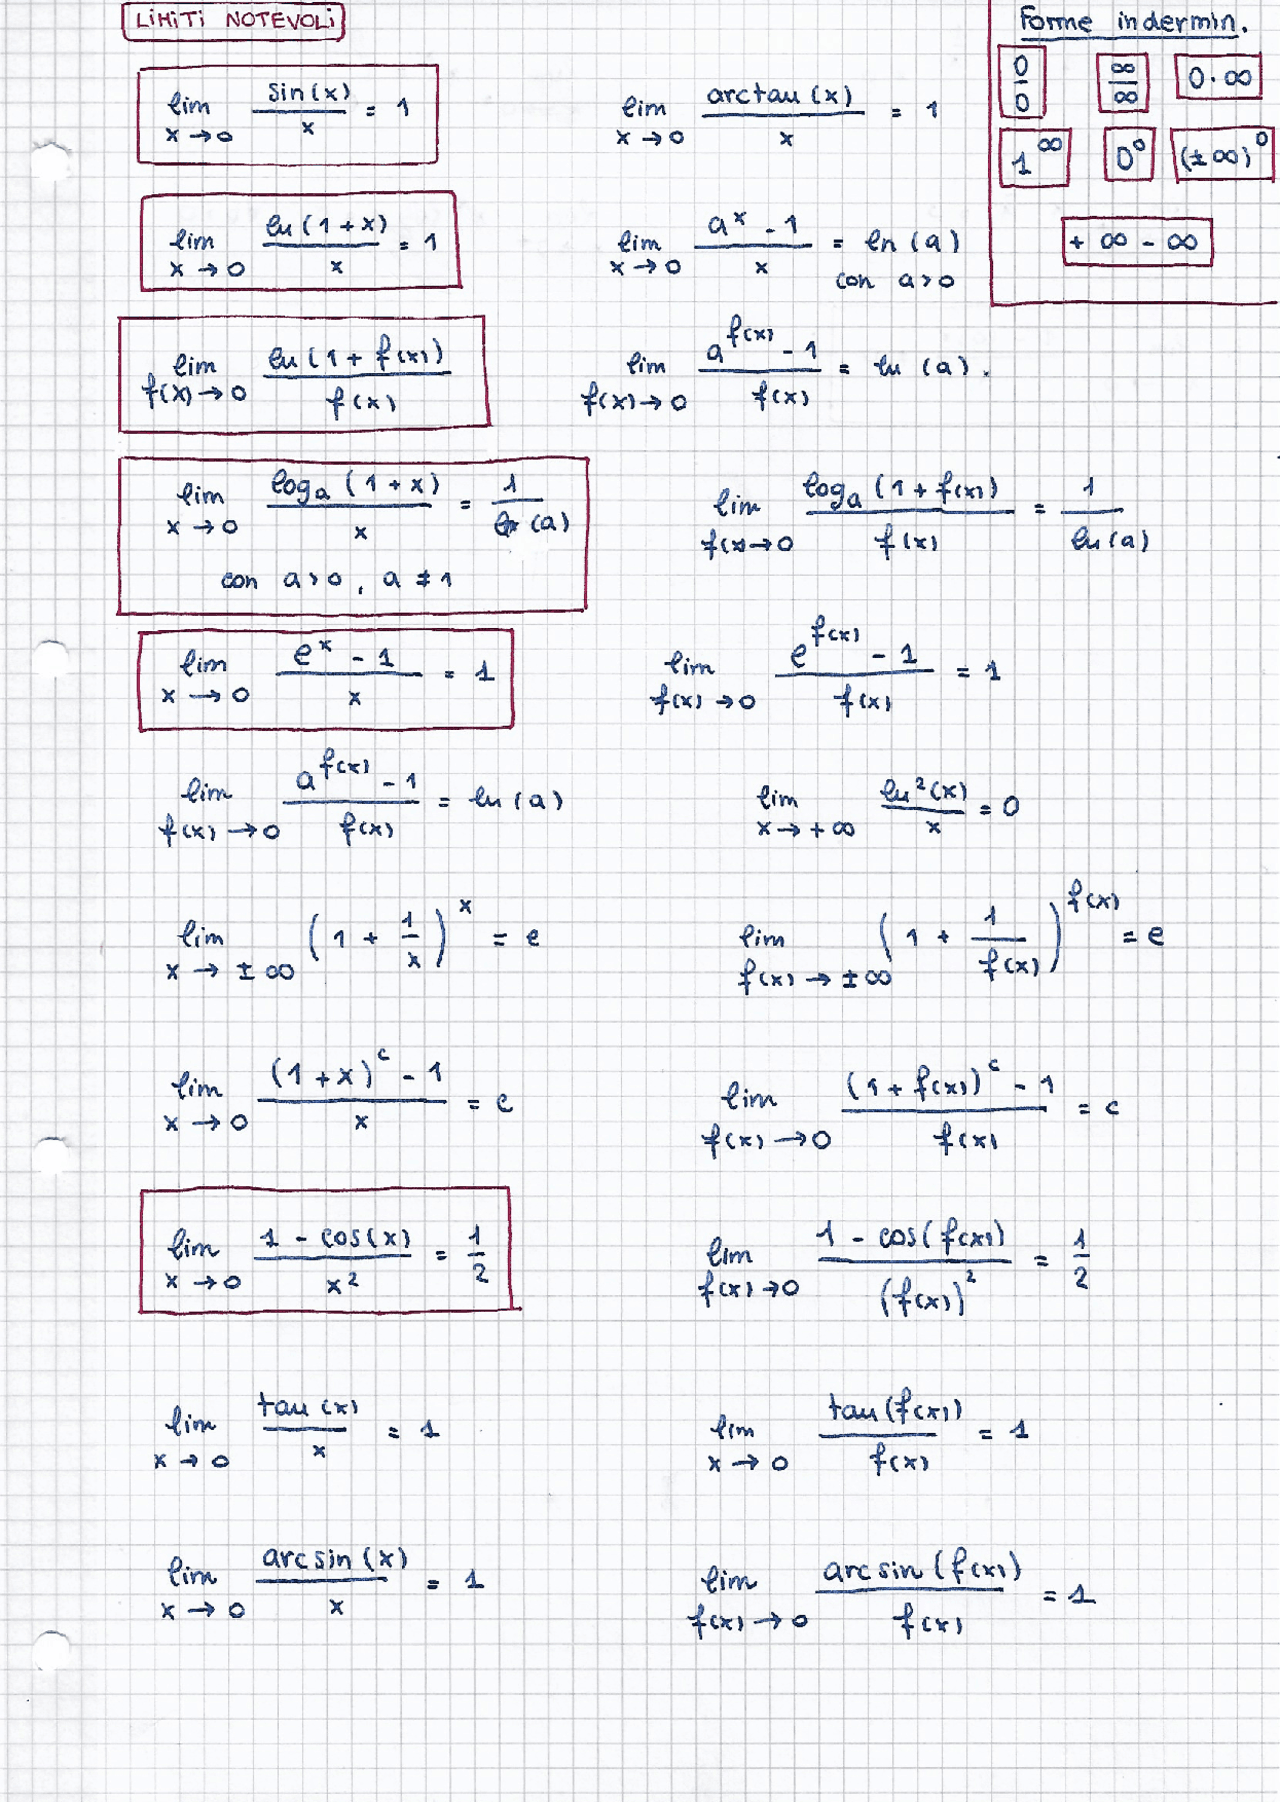 LIMITI NOTEVOLI
Forme indermin.
0/0   ∞/∞   0·∞
1^∞   0^0   (±∞)^0
+∞ - ∞
lim x→0 sin(x)/x = 1
lim x→0 arctan(x)/x = 1
lim x→0 ln(1+x)/x = 1
lim x→0 (a^x - 1)/x = ln(a)
con a>0
lim f(x)→0 ln(1+f(x))/f(x)
lim f(x)→0 (a^f(x) - 1)/f(x) = ln(a).
lim x→0 log_a(1+x)/x = 1/ln(a)
con a>0, a≠1
lim f(x)→0 log_a(1+f(x))/f(x) = 1/ln(a)
lim x→0 (e^x - 1)/x = 1
lim f(x)→0 (e^f(x) - 1)/f(x) = 1
lim f(x)→0 (a^f(x) - 1)/f(x) = ln(a)
lim x→+∞ ln²(x)/x = 0
lim x→±∞ (1 + 1/x)^x = e
lim f(x)→±∞ (1 + 1/f(x))^f(x) = e
lim x→0 ((1+x)^c - 1)/x = c
lim f(x)→0 ((1+f(x))^c - 1)/f(x) = c
lim x→0 (1 - cos(x))/x² = 1/2
lim f(x)→0 (1 - cos(f(x)))/(f(x))² = 1/2
lim x→0 tan(x)/x = 1
lim x→0 tan(f(x))/f(x) = 1
lim x→0 arcsin(x)/x = 1
lim f(x)→0 arcsin(f(x))/f(x) = 1